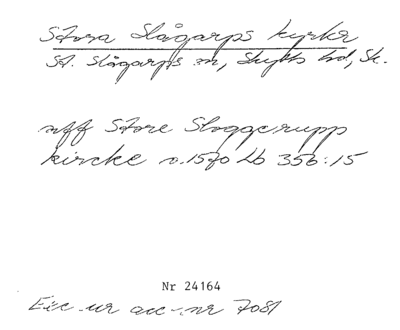 Stora Slågarps kyrka
St. Slågarps sn, Skytts hd, Sk.
uff Store Sloggerupp
kircke o. 1570 Lb 356:15
Nr 24164
Exc ur acc.nr 7081